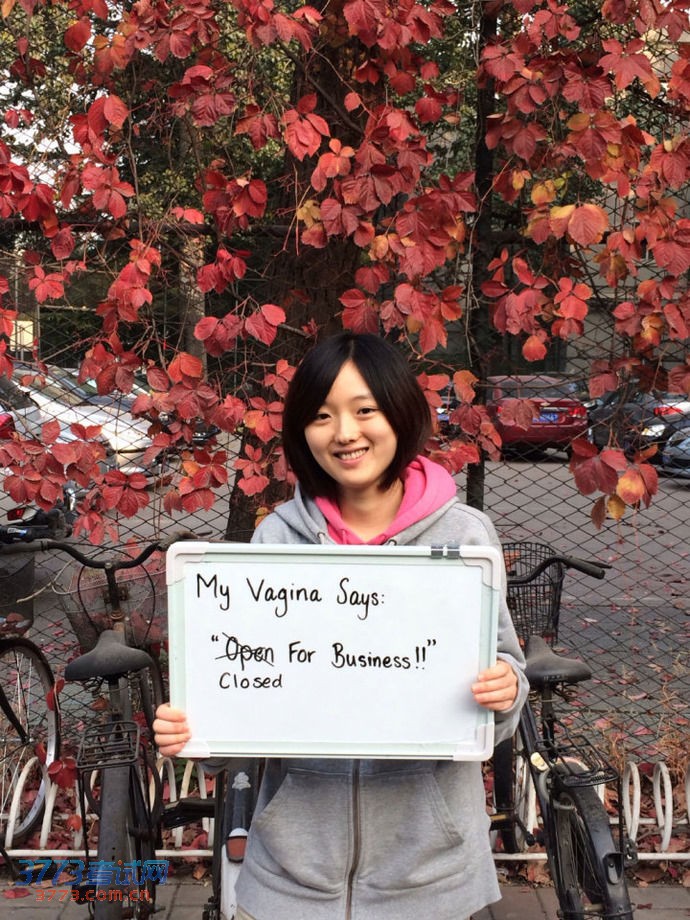 My Vagina Says:
"Open For Business!!"
Closed
3773考试网
3773.com.cn